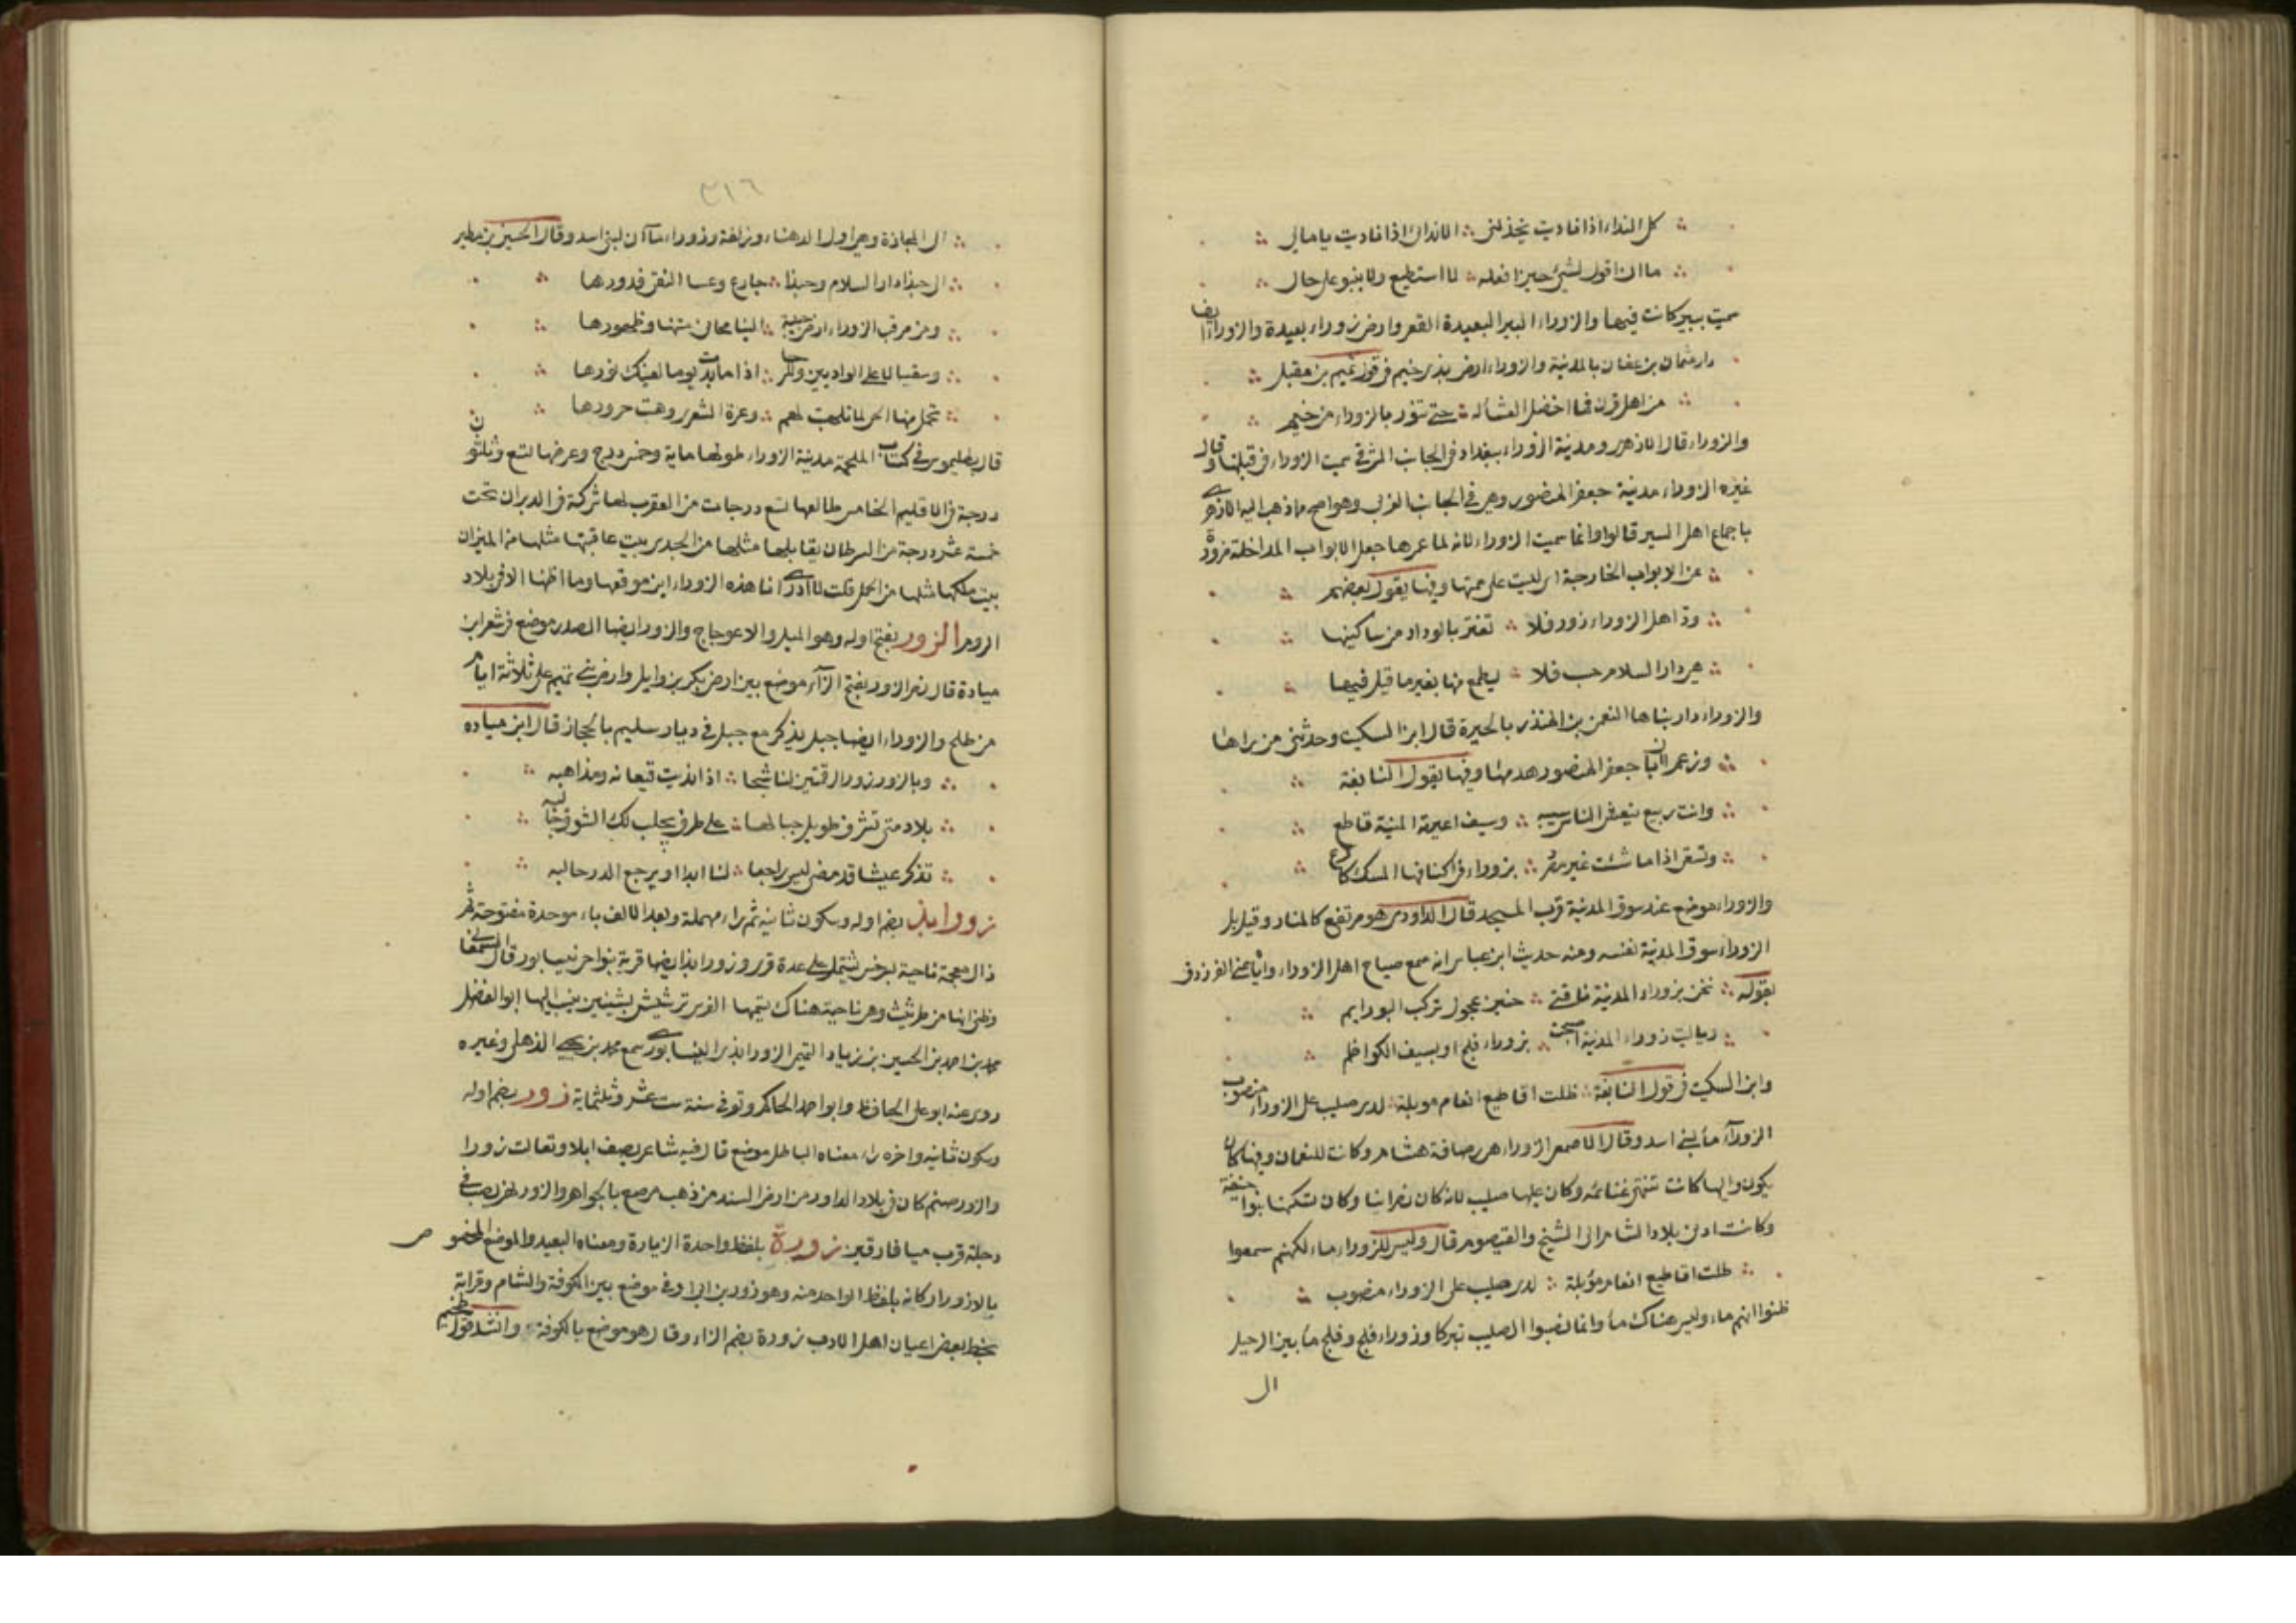 كل النداء اذا ناديت يخذلني ∴ الا نداك اذا ناديت يا مالي
ما ان اقول لشئ حين افعله ∴ لا استطيع ولا ينبو على حال
سميت ببير كانت فيها والزوراء البير البعيدة القعر وارض زوراء بعيدة والزوراء ايضا
دار عثمان بن عفان بالمدنية والزوراء ارض بذي خيم في قول تميم بن مقبل
من اهل قرن فما اخضل العشاله ∴ حتى تنور بالزوراء من خيم
والزوراء قال الازهري ومدنية الزوراء ببغداد في الجانب الشرقي سميت الزوراء في قبلتها وقال
غيره الزوراء مدنية جعفر المنصور وهي في الجانب الغربي وهو اصح ما ذهب اليه الازهري
باجماع اهل السير قالوا وانما سميت الزوراء لانه لما عمرها جعل الابواب الداخلة مزورة
عن الابواب الخارجة اي ليست على سمتها وفيها يقول بعضهم
ود اهل الزوراء زور فلا ∴ تغتر بالوداد من ساكنيها
هي دار السلام حسب فلا ∴ يطمع منها بغير ما قيل فيها
والزوراء دار بناها النعمن بن المنذر بالحيرة قال ابن السكيت وحدثني من يراها
وزعم ان ابا جعفر المنصور هدمها وفيها يقول النابغة
وانت ربيع ينعش الناس سيبه ∴ وسيف اعيرته المنية قاطع
وتسقى اذا ما شئت غير مصرد ∴ بزوراء في اكنافها المسك كارع
والزوراء موضع عند سوق المدنية قرب المسجد قال الداودي هو مرتفع كالمنار وقيل بل
الزوراء سوق المدنية نفسه ومنه حديث ابن عباس انه سمع صياح اهل الزوراء واياها عنى الفرزدق
بقوله ∴ نحن بزوراء المدنية ناقتي ∴ حنين عجول تركب البو رايم
وياليت زوراء المدنية اصبحت ∴ بزوراء فلج او بسيف الكواظم
وابن السكيت في قول النابغة ∴ ظلت اقاطيع انعام موبلة ∴ لدى صليب على الزوراء منصوب
الزوراء ماء لبني اسد وقال الاصمعي الزوراء هي رصافة هشام وكانت للنعمان وفيها كان
يكون واليها كانت تنتهي غنائمه وكان عليها صليب لانه كان نصرانيا وكان تسكنها بنوا حنيفة
وكانت ادنى بلاد الشام الى الشيح والقيصوم قال وليس للزوراء ماء لكنهم سمعوا
ظلت اقاطيع انعام مؤبلة ∴ لدى صليب على الزوراء منصوب
ظنوا انهم ماء وليس هناك ماء وانما نصبوا الصليب تبركا وزوراء فلج وفلج ماء بين الرحيل
الى
٣١٦
الى المجازة وهي اول الدهناء وزلفة وزوراء ماآن لبني اسد وقال الحسين بن مطير
الا حبذا دار السلام وحبذا ∴ جارع وعسا النقى فدورها
ومن مرقب الزوراء ارض حبيبة ∴ الينا محاني متنها وظهورها
وسقيا لاعلى الواديين وللرحا ∴ اذا ما بدت يوما لعينك نورها
تحمل منها الحي لما تلهبت لهم ∴ وغرة الشعرى وهبت حرورها
قال بطليموس في كتاب الملحمة مدنية الزوراء طولها ماية وخمس درج وعرضها تسع وثلثون
درجة في الاقليم الخامس طالعها تسع درجات من العقرب لها شركة في الدبران تحت
خمسة عشر درجة من السرطان يقابلها مثلها من الجدي بيت عاقبتها مثلها من الميزان
بيت ملكها مثلها من الحمل قلت لا ادري انا هذه الزوراء اين موقعها وما اظنها الا في بلاد
الروم الزور بفتح اوله وهو الميل والاعوجاج والزور ايضا الصدر موضع في شعر ابن
ميادة قال نصر الزور بفتح الزاء موضع بين ارض بكر بن وايل وارض بني تميم على ثلاثة ايام
من طلح والزوراء ايضا جبل يذكر مع جبل في ديار سليم بالحجاز قال ابن مياده
وبالزور زور الرقتين لنا شجا ∴ اذا نديت قيعانه ومذاهبه
بلاد متى تشرف طويل جبالها ∴ على طرف يجلب لك الشوق جالبه
تذكر عيشا قد مضى ليس راجعا ∴ لنا ابدا او يرجع الدر حالبه
زورابذ بضم اوله وسكون ثانيه ثم راء مهملة وبعد الالف باء موحدة مفتوحة ثم
ذال معجمة ناحية بسرخس تشتمل على عدة قرى وزورابذ ايضا قرية بنواحي نيسابور قال السمعاني
وظني انها من طريثيث وهي ناحية هناك يسميها الفرس ترشيش بشينين ينسب اليها ابو الفضل
محمد بن احمد بن الحسين بن زياد التميمي الزورابذي النيسابوري سمع محمد بن يحيى الذهلي وغيره
روى عنه ابو على الحافظ وابو احمد الحاكم وتوفي سنة ست عشر وثلثماية زور بضم اوله
وسكون ثانيه واخره راء معناه الباطل موضع قال فيه شاعر يصف ابلا وتعالت زورا
والزور صنم كان في بلاد الداور من ارض السند من ذهب مرصع بالجواهر والزور نهر يصب في
دجلة قرب ميافارقين زورة بلفظ واحدة الزيارة ومعناه البعيد والموضع المخصوص
بالازورار كانه بلفظ الواحد منه وهو زور بن ابي اوفى موضع بين الكوفة والشام وقراته
بخط بعض اعيان اهل الادب زورة بضم الزاء وقال هو موضع بالكوفة وانشد قول طخيم